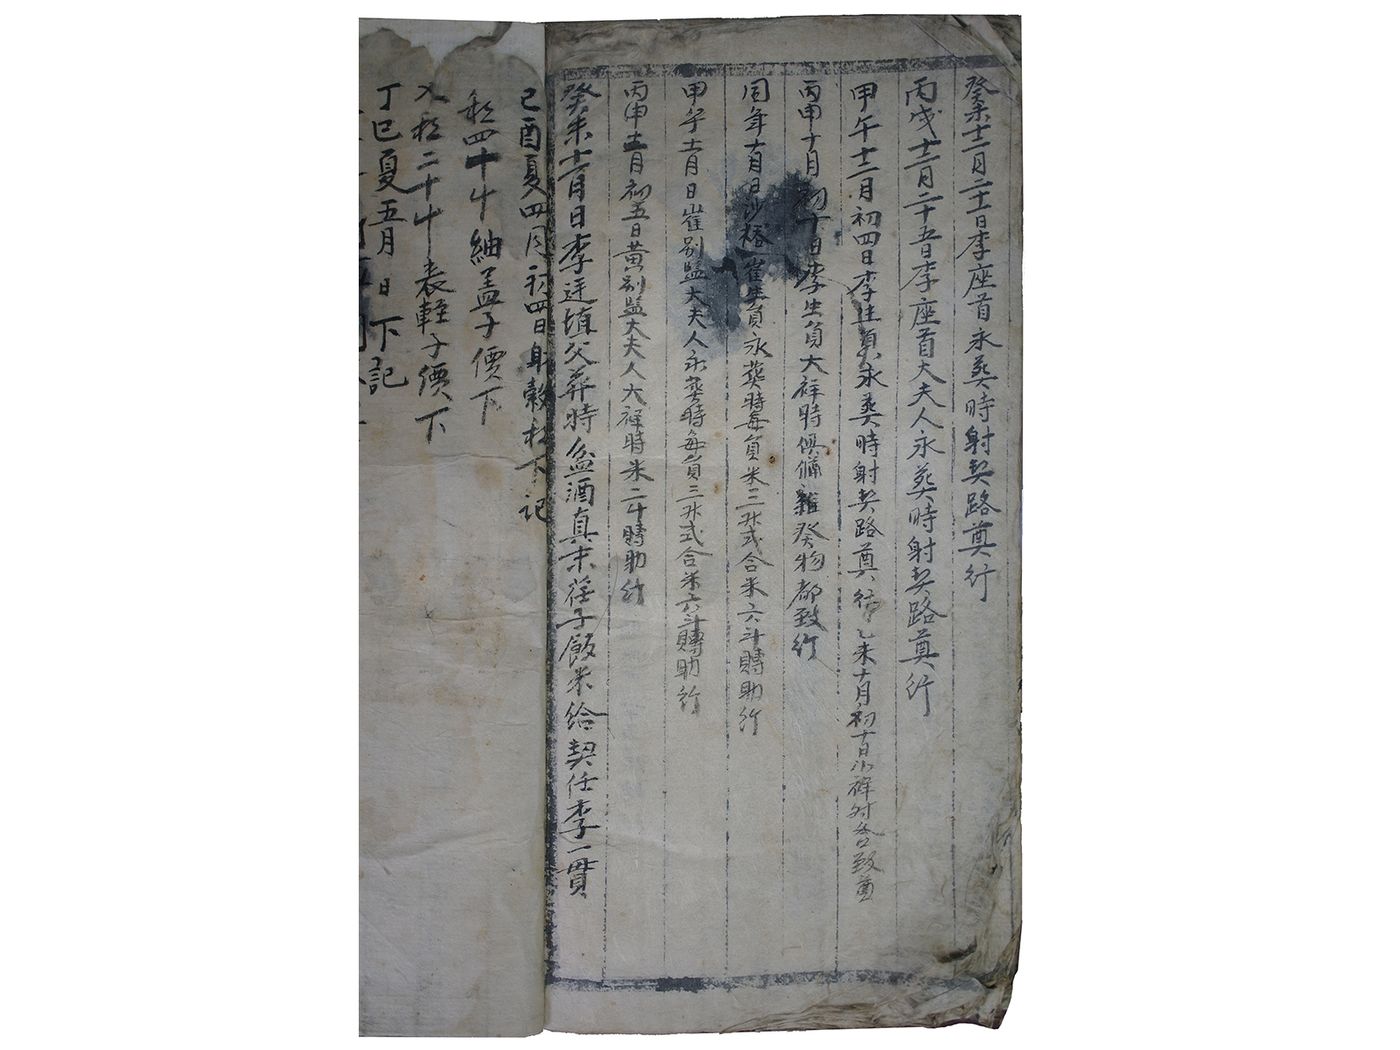 癸未十二月二十二日李座首永葬時射契路奠行
丙戌十二月二十五日李座首大夫人永葬時射契路奠行
甲午十二月初四日李生員永葬時射契路奠行乙未十月初十日小祥時各致奠
丙申十月初十日李生員大祥時俱備雜癸物都致行
同年十月日沙格崔生員永葬時每員米三升式合米六斗賻助行
甲午十二月日崔別監大夫人永葬時每員三升式合米六斗賻助行
丙申十二月初五日黃別監大夫人大祥時米二斗賻助行
癸未十二月日李廷埴父葬時盆酒真末荏子飯米給契任李一貫
己酉夏四月初四日射穀租下記
租四十斗紬盖子價下
又租二十斗表輕子價下
丁巳夏五月 日下記